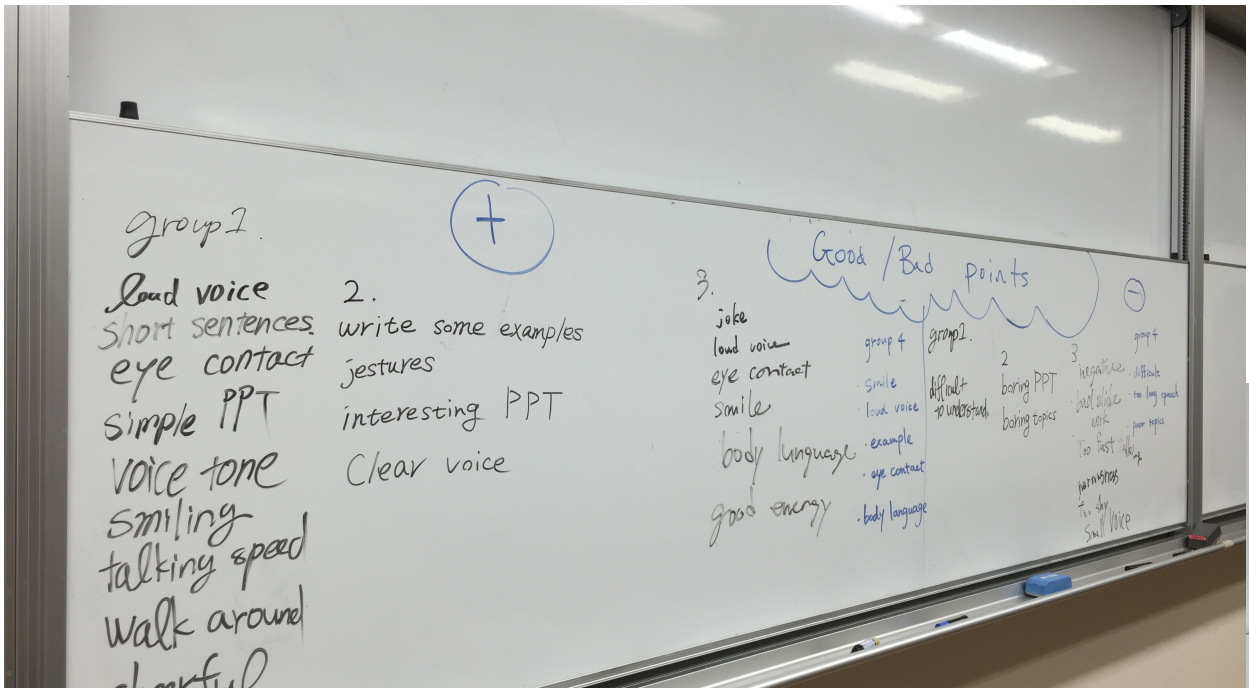 Good / Bad points
+
group1.
loud voice
short sentences
eye contact
simple PPT
voice tone
smiling
talking speed
walk around
cheerful
2.
write some examples
jestures
interesting PPT
Clear voice
3.
joke
loud voice
eye contact
smile
body lunguage
good energy
group 4
· smile
· loud voice
· example
· eye contact
· body language
−
group1.
difficult
to understand
2
boring PPT
boring topics
3
negative
bad slide
Too fast
too shy
small voice
group 4
· difficult
· too long speech
· poor topics